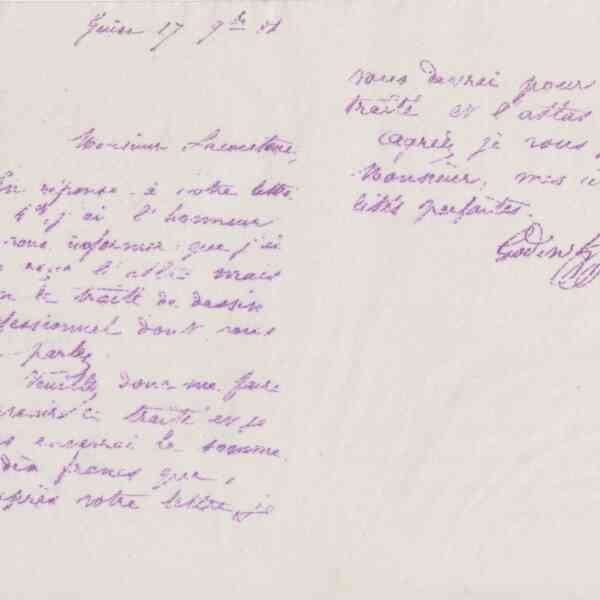 Guise 17 9bre 81
Monsieur Lacoustène,
En réponse à votre lettre
j'ai l'honneur
vous informer que j'ai
reçu l'atlas mais
le traité de dessin
fessionnel dont vous
parlez.
Veuillez donc me faire
traité et je
enverrai la somme
dix francs que,
après votre lettre, je
vous devrai pour
traité et l'atlas
Agréez, je vous
Monsieur, mes
lités parfaites.
Godin